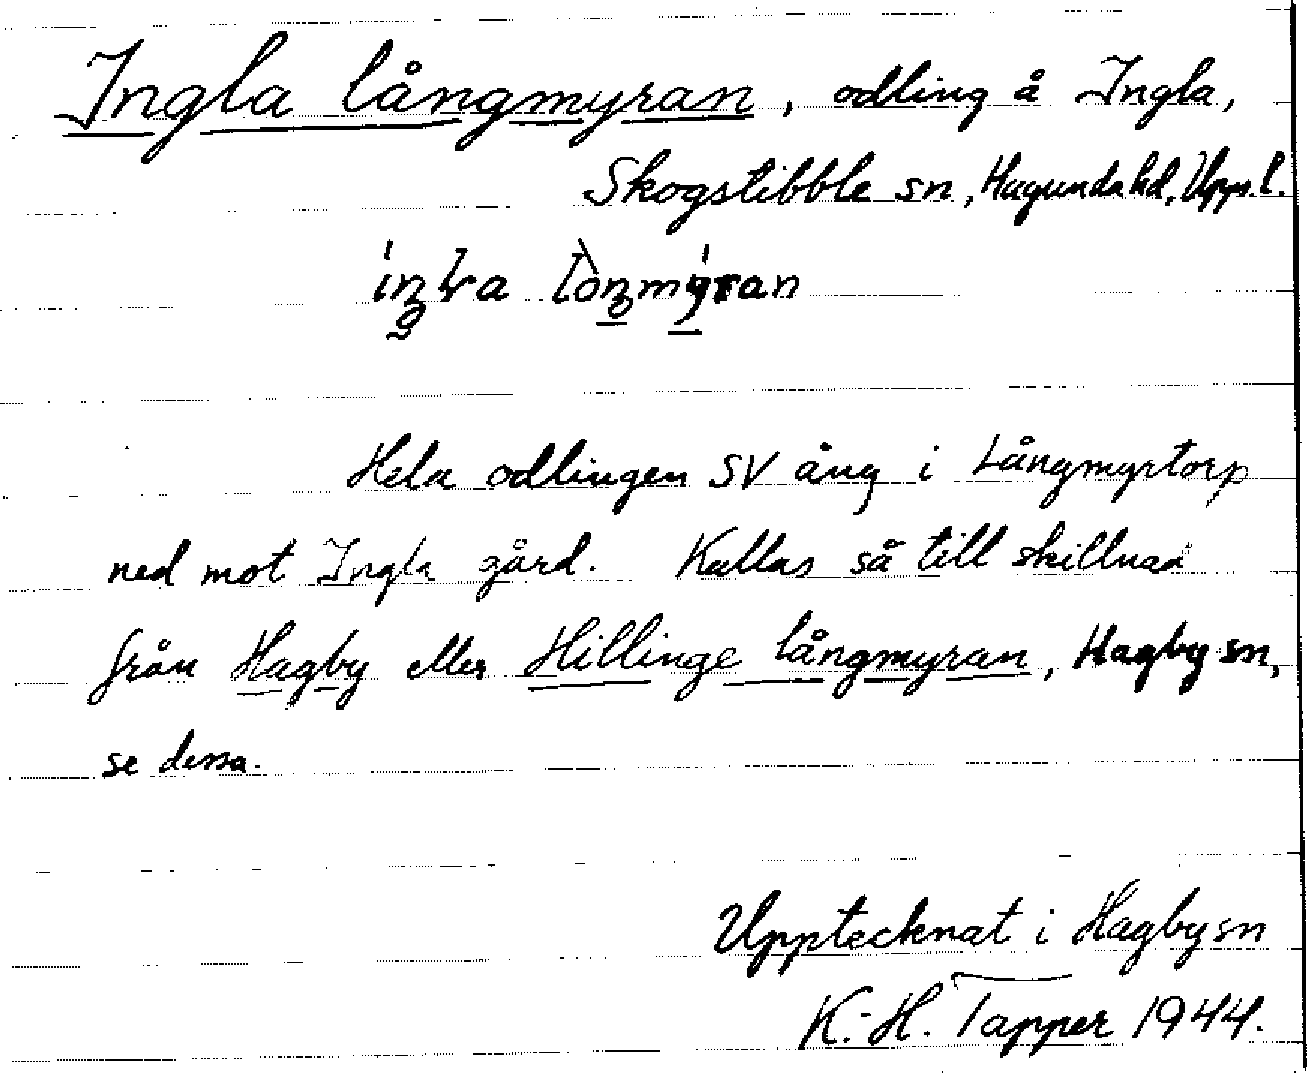 Ingla långmyran, odling å Ingla,
Skogstibble sn, Hagunda hd, Upps. l.
Hela odlingen SV äng i Långmyrtorp
ned mot Ingla gård. Kallas så till skillnad
från Hagby eller Hillinge långmyran, Hagby sn,
se dessa.
Upptecknat i Hagby sn
K.-H. Tapper 1944.